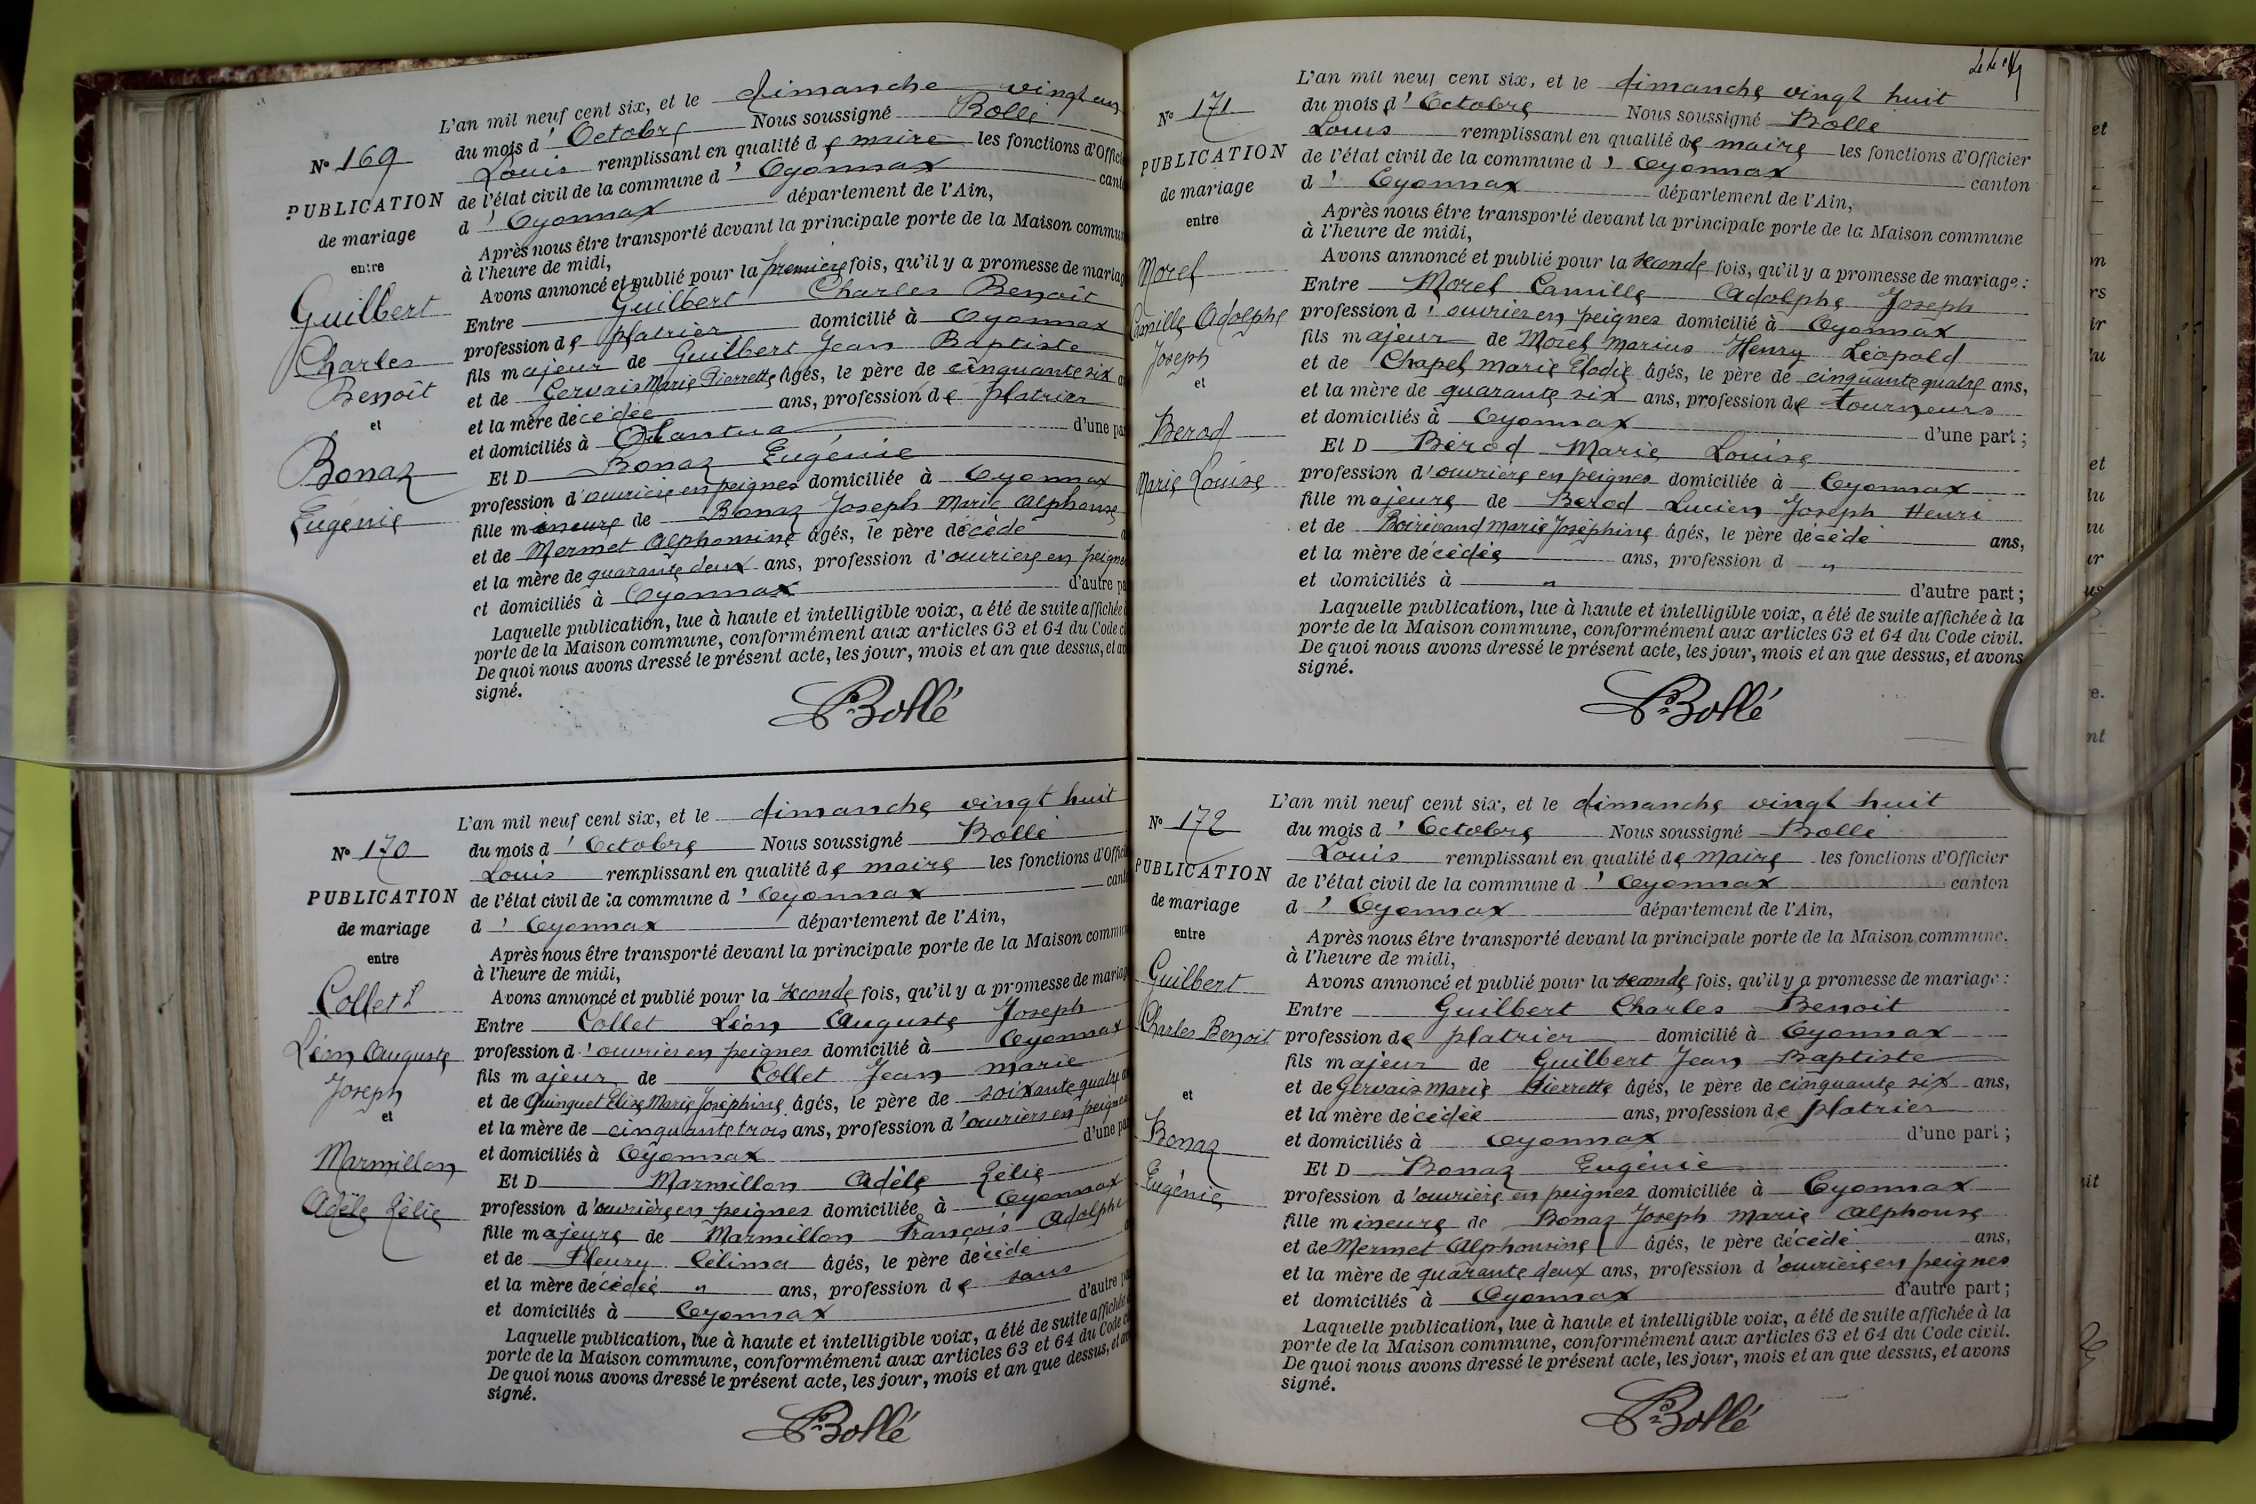 N° 169
PUBLICATION
de mariage
entre
Guilbert
Charles
Benoît
et
Bonaz
Eugénie
L'an mil neuf cent six, et le dimanche vingt un
du mois d'Octobre Nous soussigné Bollé
Louis remplissant en qualité de maire les fonctions d'Offici
de l'état civil de la commune d'Oyonnax cant
d'Oyonnax département de l'Ain,
Après nous être transporté devant la principale porte de la Maison commun
à l'heure de midi,
Avons annoncé et publié pour la première fois, qu'il y a promesse de mariag
Entre Guilbert Charles Benoit
profession de platrier domicilié à Oyonnax
fils majeur de Guilbert Jean Baptiste
et de Gervais Marie Pierrette âgés, le père de cinquante six a
et la mère décédée ans, profession de platrier
et domiciliés à Nantua d'une pa
Et D Bonaz Eugénie
profession d'ouvrière en peignes domiciliée à Oyonnax
fille mineure de Bonaz Joseph Marie Alphonse
et de Mermet Alphonsine âgés, le père décédé a
et la mère de quarante deux ans, profession d'ouvrière en peigne
et domiciliés à Oyonnax d'autre pa
Laquelle publication, lue à haute et intelligible voix, a été de suite affichée
porte de la Maison commune, conformément aux articles 63 et 64 du Code c
De quoi nous avons dressé le présent acte, les jour, mois et an que dessus, et av
signé.
Bollé
N° 170
PUBLICATION
de mariage
entre
Collet L
Léon Auguste
Joseph
et
Marmillon
Adèle Zélie
L'an mil neuf cent six, et le dimanche vingt huit
du mois d'Octobre Nous soussigné Bollé
Louis remplissant en qualité de maire les fonctions d'Offici
de l'état civil de la commune d'Oyonnax cant
d'Oyonnax département de l'Ain,
Après nous être transporté devant la principale porte de la Maison commun
à l'heure de midi,
Avons annoncé et publié pour la seconde fois, qu'il y a promesse de mariag
Entre Collet Léon Auguste Joseph
profession d'ouvrier en peignes domicilié à Oyonnax
fils majeur de Collet Jean Marie
et de Quinquet Elise Marie Joséphine âgés, le père de soixante quatre a
et la mère de cinquante trois ans, profession d'ouvriers en peignes
et domiciliés à Oyonnax d'une pa
Et D Marmillon Adèle Zélie
profession d'ouvrière en peignes domiciliée à Oyonnax
fille majeure de Marmillon François Adolphe
et de Fleury Célima âgés, le père décédé a
et la mère décédée " ans, profession de sans
et domiciliés à Oyonnax d'autre pa
Laquelle publication, lue à haute et intelligible voix, a été de suite affichée
porte de la Maison commune, conformément aux articles 63 et 64 du Code c
De quoi nous avons dressé le présent acte, les jour, mois et an que dessus, et av
signé.
Bollé
N° 171
PUBLICATION
de mariage
entre
Morel
Camille Adolphe
Joseph
et
Berod
Marie Louise
L'an mil neuf cent six, et le dimanche vingt huit
du mois d'Octobre Nous soussigné Bollé
Louis remplissant en qualité de maire les fonctions d'Officier
de l'état civil de la commune d'Oyonnax canton
d'Oyonnax département de l'Ain,
Après nous être transporté devant la principale porte de la Maison commune
à l'heure de midi,
Avons annoncé et publié pour la seconde fois, qu'il y a promesse de mariage :
Entre Morel Camille Adolphe Joseph
profession d'ouvrier en peignes domicilié à Oyonnax
fils majeur de Morel Marius Henry Léopold
et de Chapel Marie Elodie âgés, le père de cinquante quatre ans,
et la mère de quarante six ans, profession de tourneurs
et domiciliés à Oyonnax d'une part ;
Et D Bérod Marie Louise
profession d'ouvrière en peignes domiciliée à Oyonnax
fille majeure de Berod Lucien Joseph Henri
et de Marie Joséphine âgés, le père décédé ans,
et la mère décédée ans, profession d "
et domiciliés à " d'autre part ;
Laquelle publication, lue à haute et intelligible voix, a été de suite affichée à la
porte de la Maison commune, conformément aux articles 63 et 64 du Code civil.
De quoi nous avons dressé le présent acte, les jour, mois et an que dessus, et avons
signé.
Bollé
N° 172
PUBLICATION
de mariage
entre
Guilbert
Charles Benoit
et
Bonaz
Eugénie
L'an mil neuf cent six, et le dimanche vingt huit
du mois d'Octobre Nous soussigné Bollé
Louis remplissant en qualité de maire les fonctions d'Officier
de l'état civil de la commune d'Oyonnax canton
d'Oyonnax département de l'Ain,
Après nous être transporté devant la principale porte de la Maison commune.
à l'heure de midi,
Avons annoncé et publié pour la seconde fois, qu'il y a promesse de mariage :
Entre Guilbert Charles Benoit
profession de platrier domicilié à Oyonnax
fils majeur de Guilbert Jean Baptiste
et de Gervais Marie Pierrette âgés, le père de cinquante six ans,
et la mère décédée ans, profession de platrier
et domiciliés à Oyonnax d'une part ;
Et D Bonaz Eugénie
profession d'ouvrière en peignes domiciliée à Oyonnax
fille mineure de Bonaz Joseph Marie Alphonse
et de Mermet Alphonsine âgés, le père décédé ans,
et la mère de quarante deux ans, profession d'ouvrière en peignes
et domiciliés à Oyonnax d'autre part ;
Laquelle publication, lue à haute et intelligible voix, a été de suite affichée à la
porte de la Maison commune, conformément aux articles 63 et 64 du Code civil.
De quoi nous avons dressé le présent acte, les jour, mois et an que dessus, et avons
signé.
Bollé